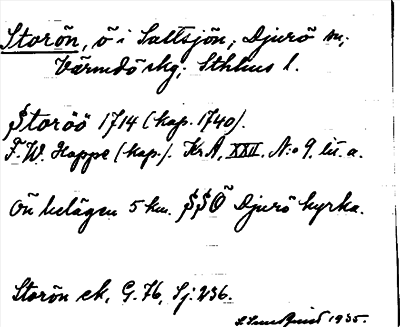 Storön, ö i Saltsjön; Djurö sn;
Värmdö skg; Sthlms l.
Storöö 1714 (kop. 1740).
F. W. Hoppe (kop.). KrA, XXII. N:o 9. lit. a.
Ön belägen 5 km. SSÖ Djurö kyrka.
Storön ek, G. 76, Sj: 236.
1935.